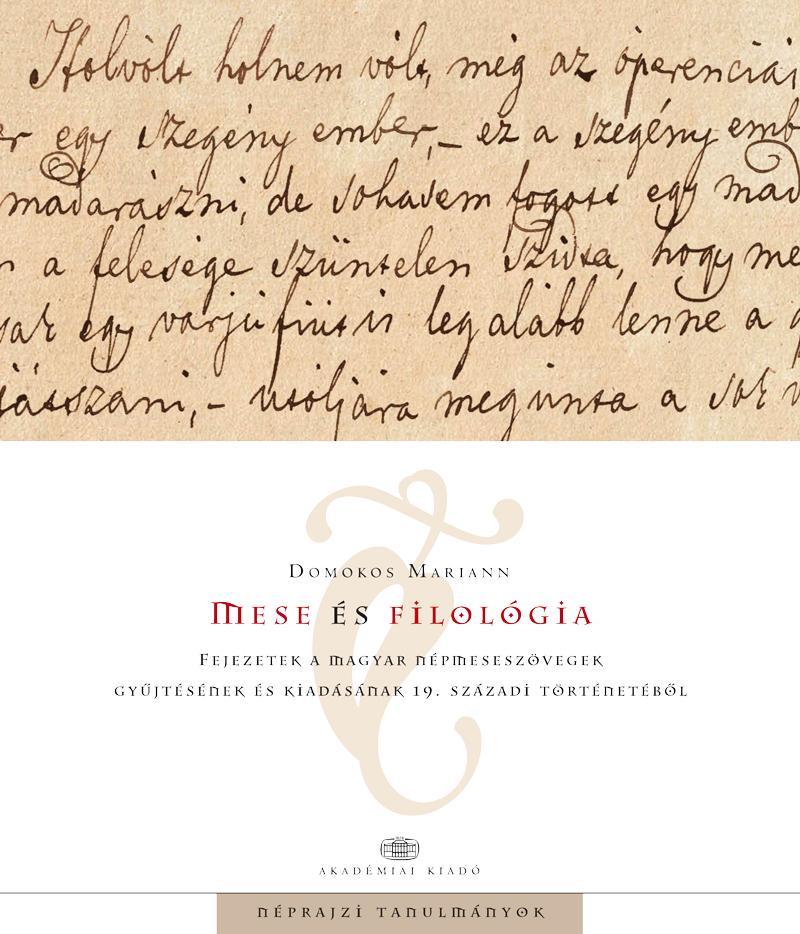 Holvolt holnem vólt, még az óperenciái
er egy szegény ember,– ez a szegény emb
madarászni, de sohasem fogott egy mad
a felesége szüntelen szidta, hogy me
sak egy varjú fiút is legalább lenne a
játszani,– utóljára megunta a sok
Domokos Mariann
Mese és filológia
Fejezetek a magyar népmeseszövegek
gyűjtésének és kiadásának 19. századi történetéből
AKADÉMIAI KIADÓ
NÉPRAJZI TANULMÁNYOK